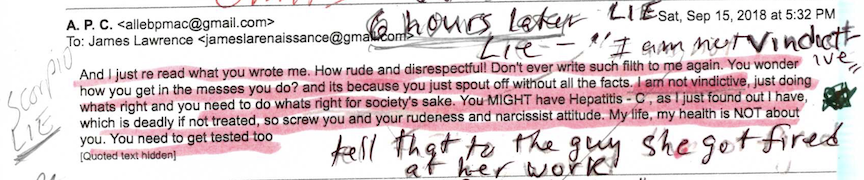 6 hours later LIE
A. P. C. <allebpmac@gmail.com> Sat, Sep 15, 2018 at 5:32 PM
To: James Lawrence <jameslarenaissance@gmail.com>
Lie - "I am not vindictive"
And I just re read what you wrote me. How rude and disrespectful! Don't ever write such filth to me again. You wonder
how you get in the messes you do? and its because you just spout off without all the facts. I am not vindictive, just doing
whats right and you need to do whats right for society's sake. You MIGHT have Hepatitis - C , as I just found out I have,
which is deadly if not treated, so screw you and your rudeness and narcissist attitude. My life, my health is NOT about
you. You need to get tested too
[Quoted text hidden]
Scorpio
LIE
tell that to the guy she got fired
at her work